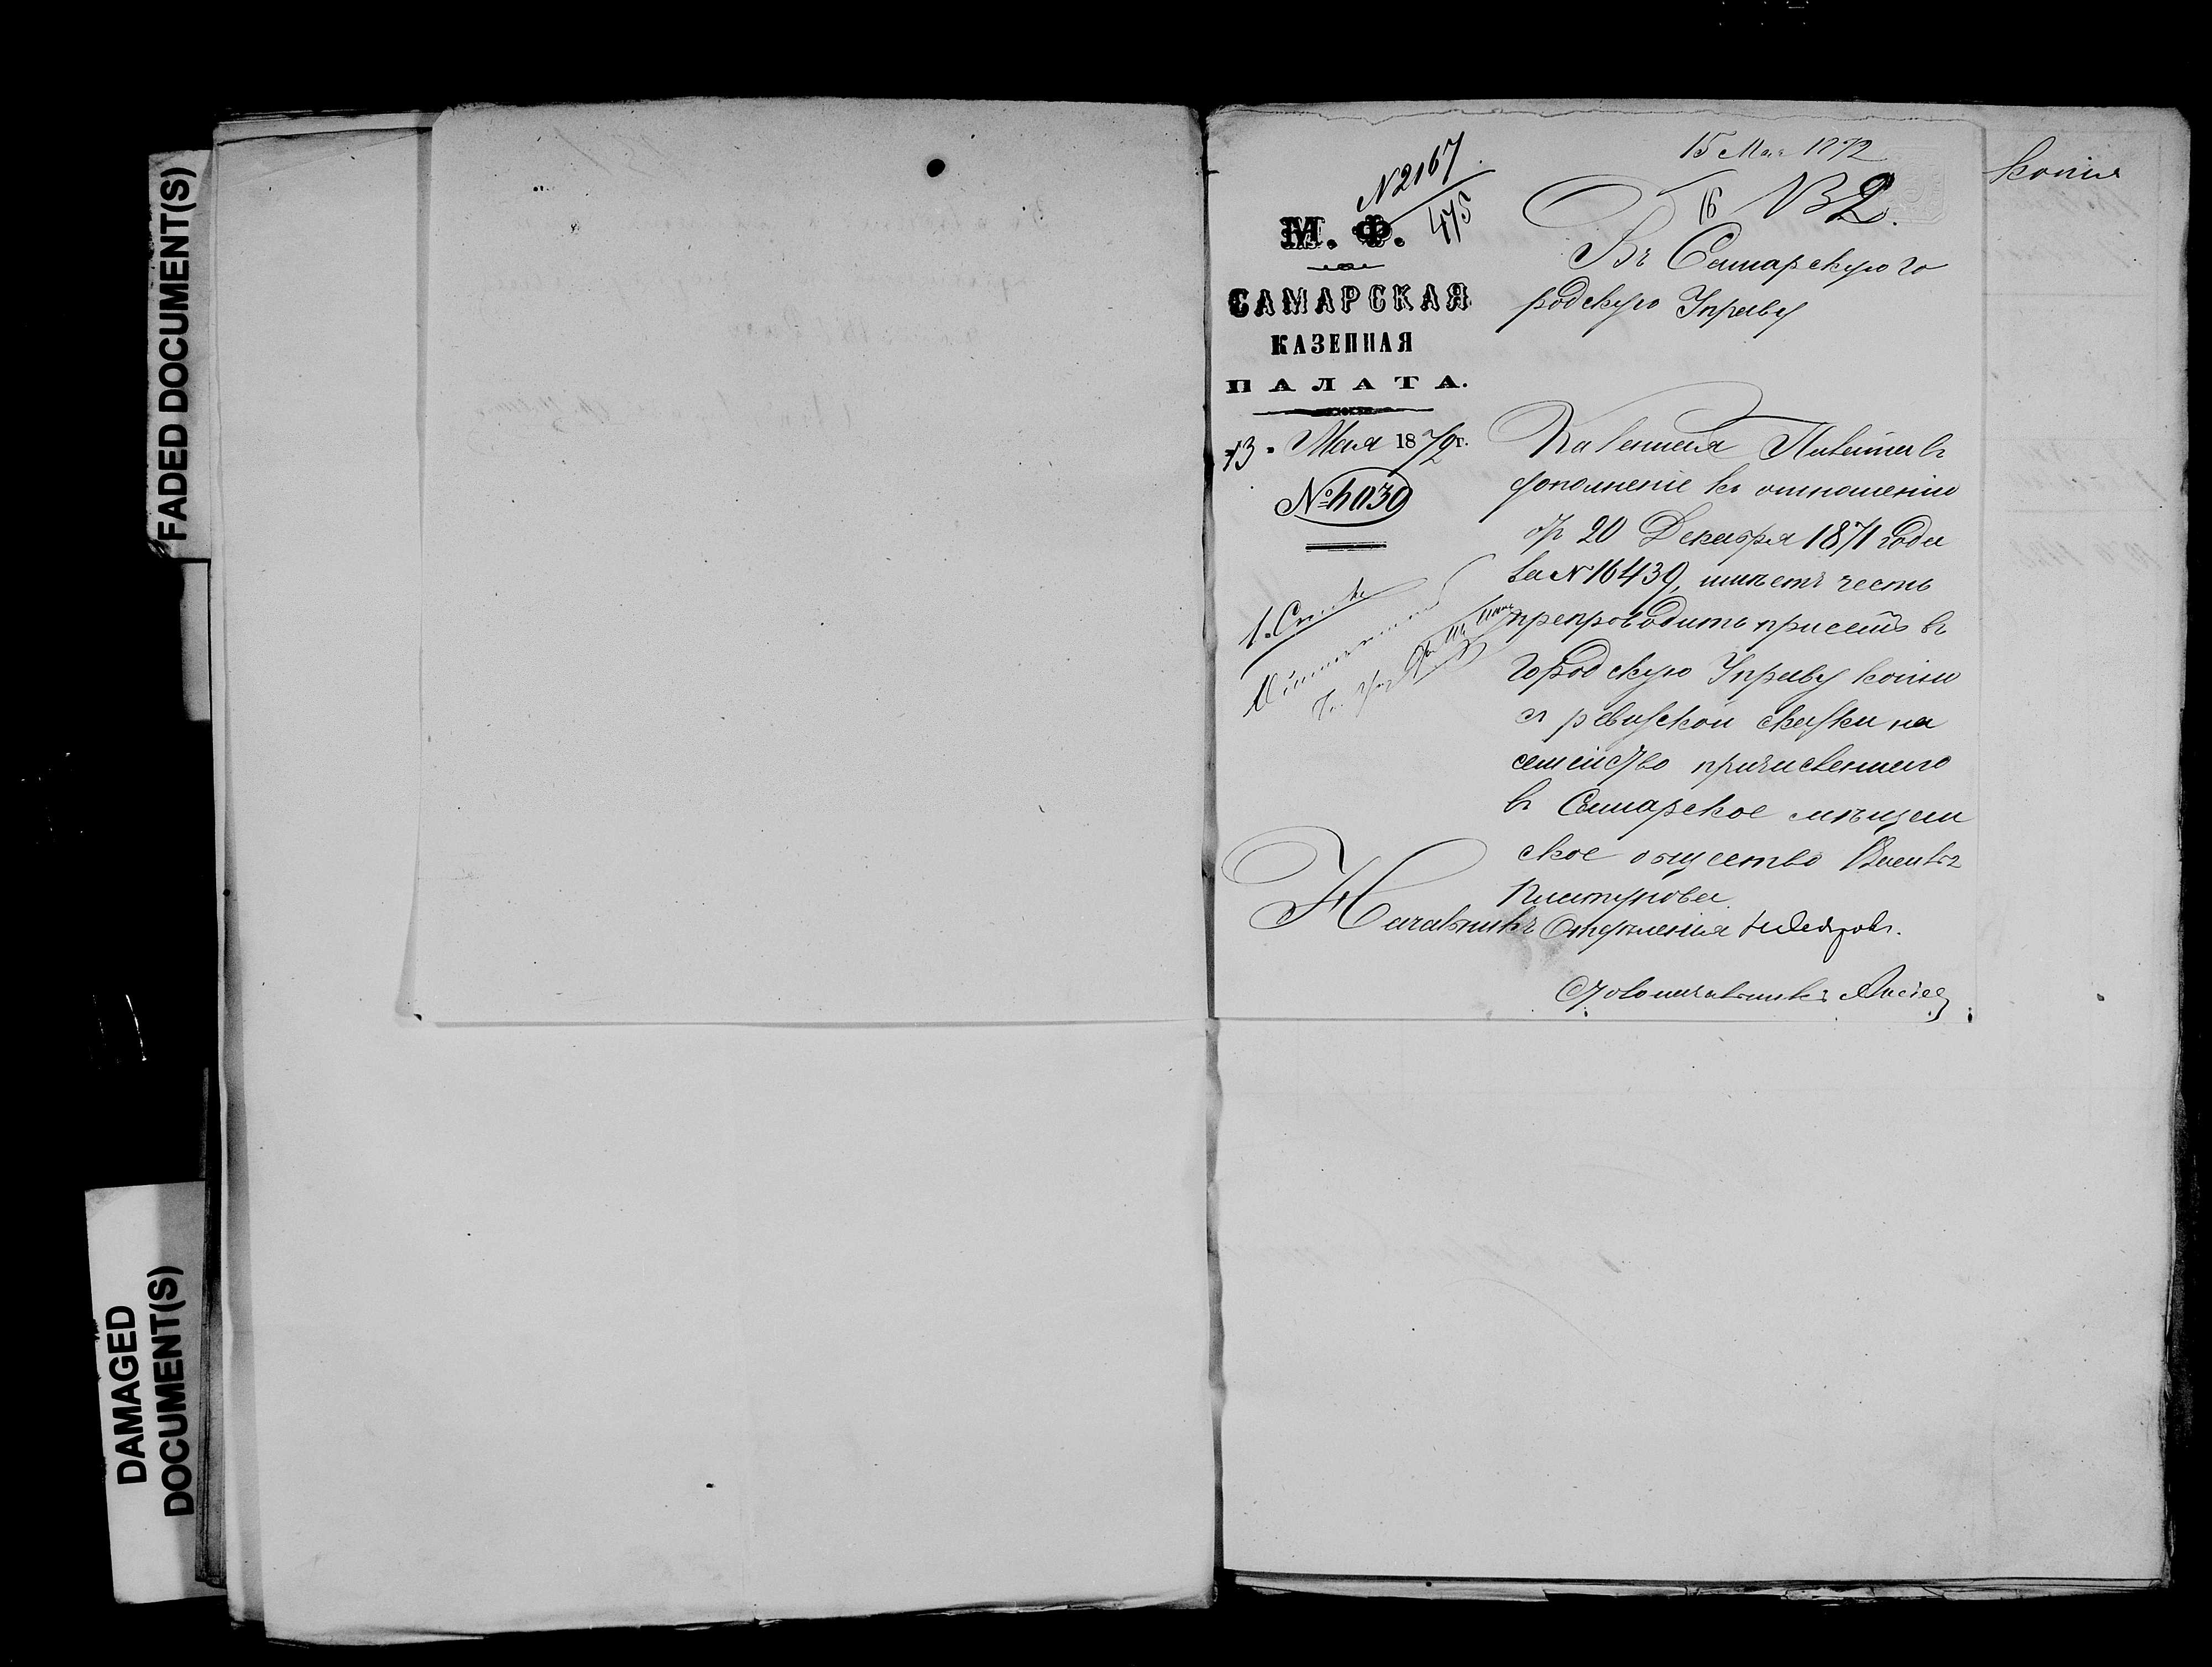 FADED DOCUMENT(S)
DAMAGED
DOCUMENT(S)
№ 2167
475
М. Ф.
САМАРСКАЯ
КАЗЕННАЯ
ПАЛАТА.
13 Мая 1872 г.
№ 4030
15 Мая 1872
16
Въ Самарскую го
родскую Управу
Казенная Палата въ
дополненіе къ отношенію
отъ 20 Декабря 1871 года
за № 16439, имѣетъ честь
препроводить при семъ въ
Городскую Управу копію
съ ревизской сказки на
семейство причисленнаго
въ Самарское мѣщан
ское общество
Начальникъ Отдѣленія
Столоначальникъ
Копія